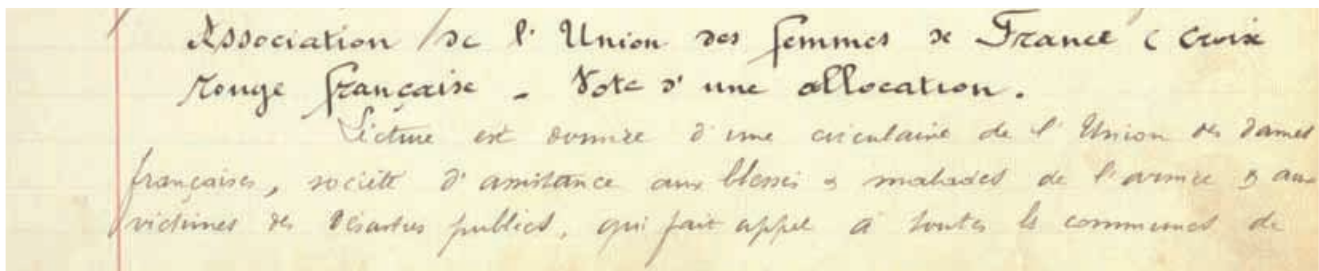 Association de l'Union des femmes de France (Croix
rouge française - Vote d'une allocation.
Lecture est donnée d'une circulaire de l'Union des Dames
françaises, société d'assistance aux blessés & malades de l'armée & aux
victimes des désastres publics, qui fait appel à toutes les communes de